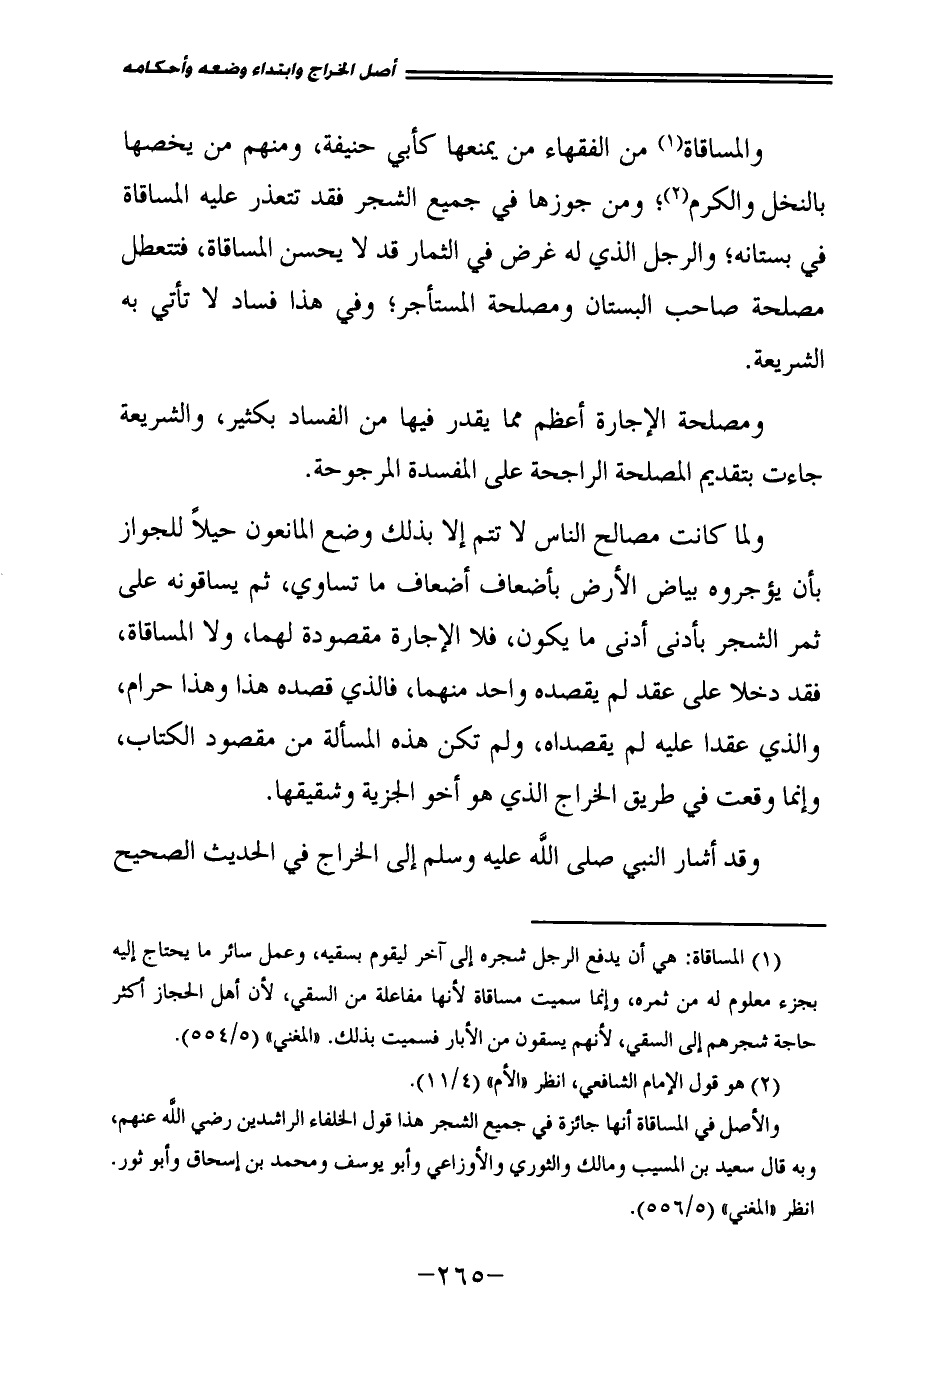 أصل الخراج وابتداء وضعه وأحكامه
والمساقاة(١) من الفقهاء من يمنعها كأبي حنيفة، ومنهم من يخصها
بالنخل والكرم(٢)؛ ومن جوزها في جميع الشجر فقد تتعذر عليه المساقاة
في بستانه؛ والرجل الذي له غرض في الثمار قد لا يحسن المساقاة، فتتعطل
مصلحة صاحب البستان ومصلحة المستأجر؛ وفي هذا فساد لا تأتي به
الشريعة.
ومصلحة الإجارة أعظم مما يقدر فيها من الفساد بكثير، والشريعة
جاءت بتقديم المصلحة الراجحة على المفسدة المرجوحة.
ولما كانت مصالح الناس لا تتم إلا بذلك وضع المانعون حيلاً للجواز
بأن يؤجروه بياض الأرض بأضعاف أضعاف ما تساوي، ثم يساقونه على
ثمر الشجر بأدنى أدنى ما يكون، فلا الإجارة مقصودة لهما، ولا المساقاة،
فقد دخلا على عقد لم يقصده واحد منهما، فالذي قصده هذا وهذا حرام،
والذي عقدا عليه لم يقصداه، ولم تكن هذه المسألة من مقصود الكتاب،
وإنما وقعت في طريق الخراج الذي هو أخو الجزية وشقيقها.
وقد أشار النبي صلى اللَّه عليه وسلم إلى الخراج في الحديث الصحيح
(١) المساقاة: هي أن يدفع الرجل شجره إلى آخر ليقوم بسقيه، وعمل سائر ما يحتاج إليه
بجزء معلوم له من ثمره، وإنما سميت مساقاة لأنها مفاعلة من السقي، لأن أهل الحجاز أكثر
حاجة شجرهم إلى السقي، لأنهم يسقون من الأبار فسميت بذلك. «المغني» (٥/٥٥٤).
(٢) هو قول الإمام الشافعي، انظر «الأم» (٤/١١).
والأصل في المساقاة أنها جائزة في جميع الشجر هذا قول الخلفاء الراشدين رضي اللَّه عنهم،
وبه قال سعيد بن المسيب ومالك والثوري والأوزاعي وأبو يوسف ومحمد بن إسحاق وأبو ثور.
انظر «المغني» (٥/٥٥٦).
-٢٦٥-